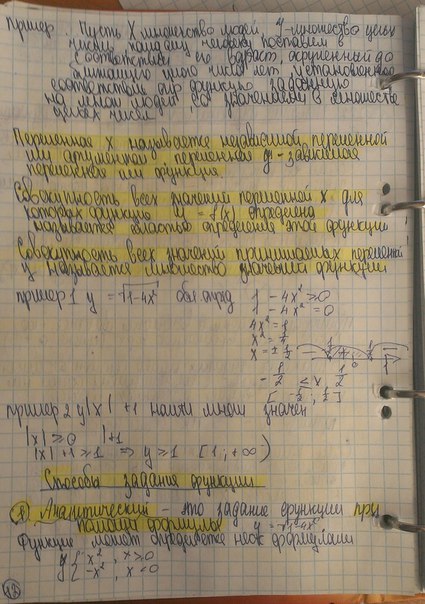 пример. Пусть X множество людей, Y-множество целых
чисел, каждому человеку поставим в
соответствие его возраст, округленный до
целого числа лет, установленное
соответствие это функция заданная
на мном людей со значением в множестве
целых чисел.
Переменная X называется независимой переменной
или аргументом, переменная y - зависимая
переменная или функция.
Совокупность всех значений переменной X для
которых функция y = f(x) определена
называется областью определения этой функции
Совокупность всех значений принимаемых переменной
y называется множество значений функции
пример 1 y = √1-4x² обл опред 1 - 4x² ≥0
1 - 4x² = 0
4x² = 1
x² = 1/4
x = ± 1/2
- 1/2 ≤ x 1/2
[ -1/2 ; 1/2 ]
пример 2 y |x| +1 найти мном значен
|x| ≥ 0 |+1
|x| +1 ≥ 1 ⇒ y ≥ 1 [1; +∞)
Способы задания функции
1) Аналитический - это задание функции при
помощи формулы y = √1-4x²
Функция может определяется неск формулами
y { x² , x ≥ 0
-x² , x < 0